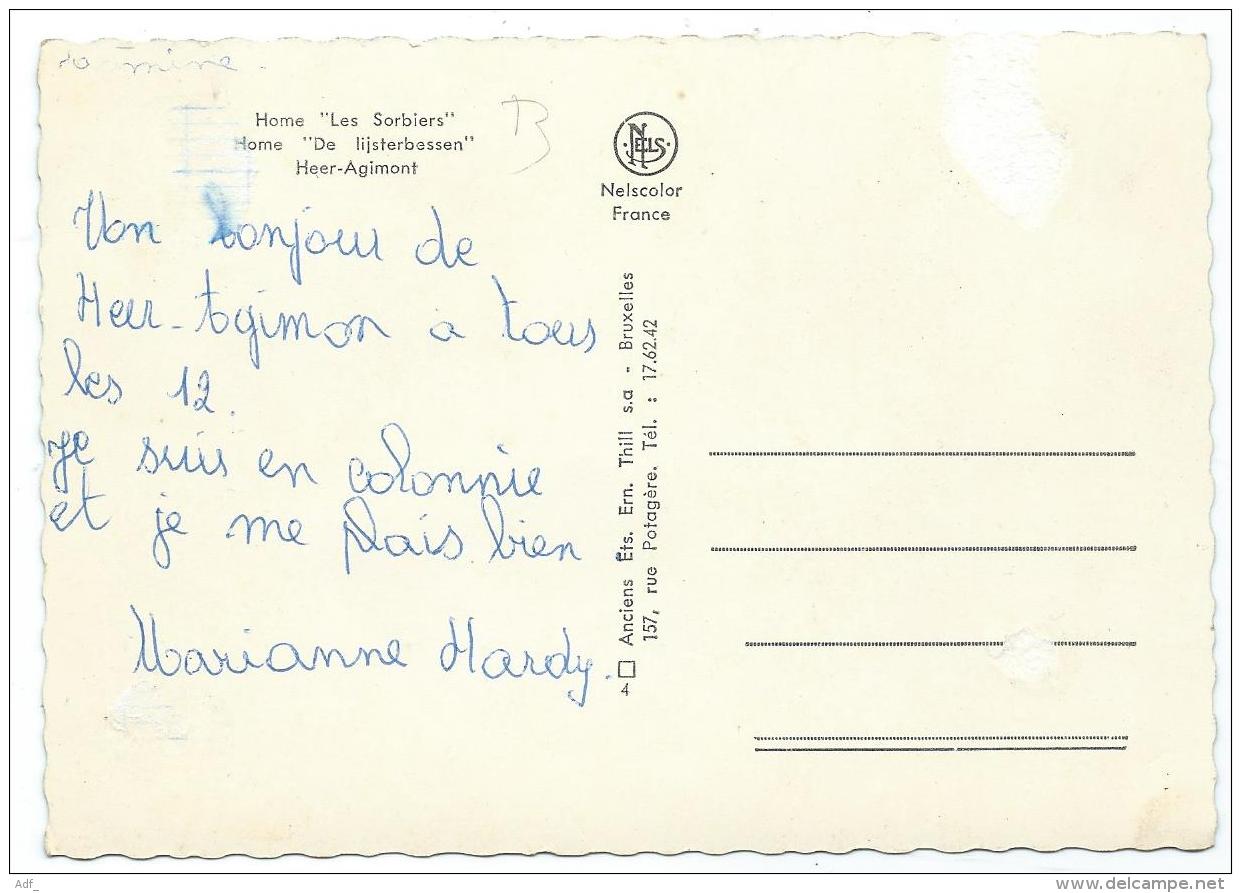 Home "Les Sorbiers"
Home "De lijsterbessen"
Heer-Agimont
B
Von bonjour de
Heer-Agimon a tous
les 12.
Je suis en colonnie
et je me plais bien
Marianne Hardy.
NELS
Nelscolor
France
Anciens Éts. Ern. Thill s.a - Bruxelles
157, rue Potagère. Tél. : 17.62.42
4
Adf_
www.delcampe.net